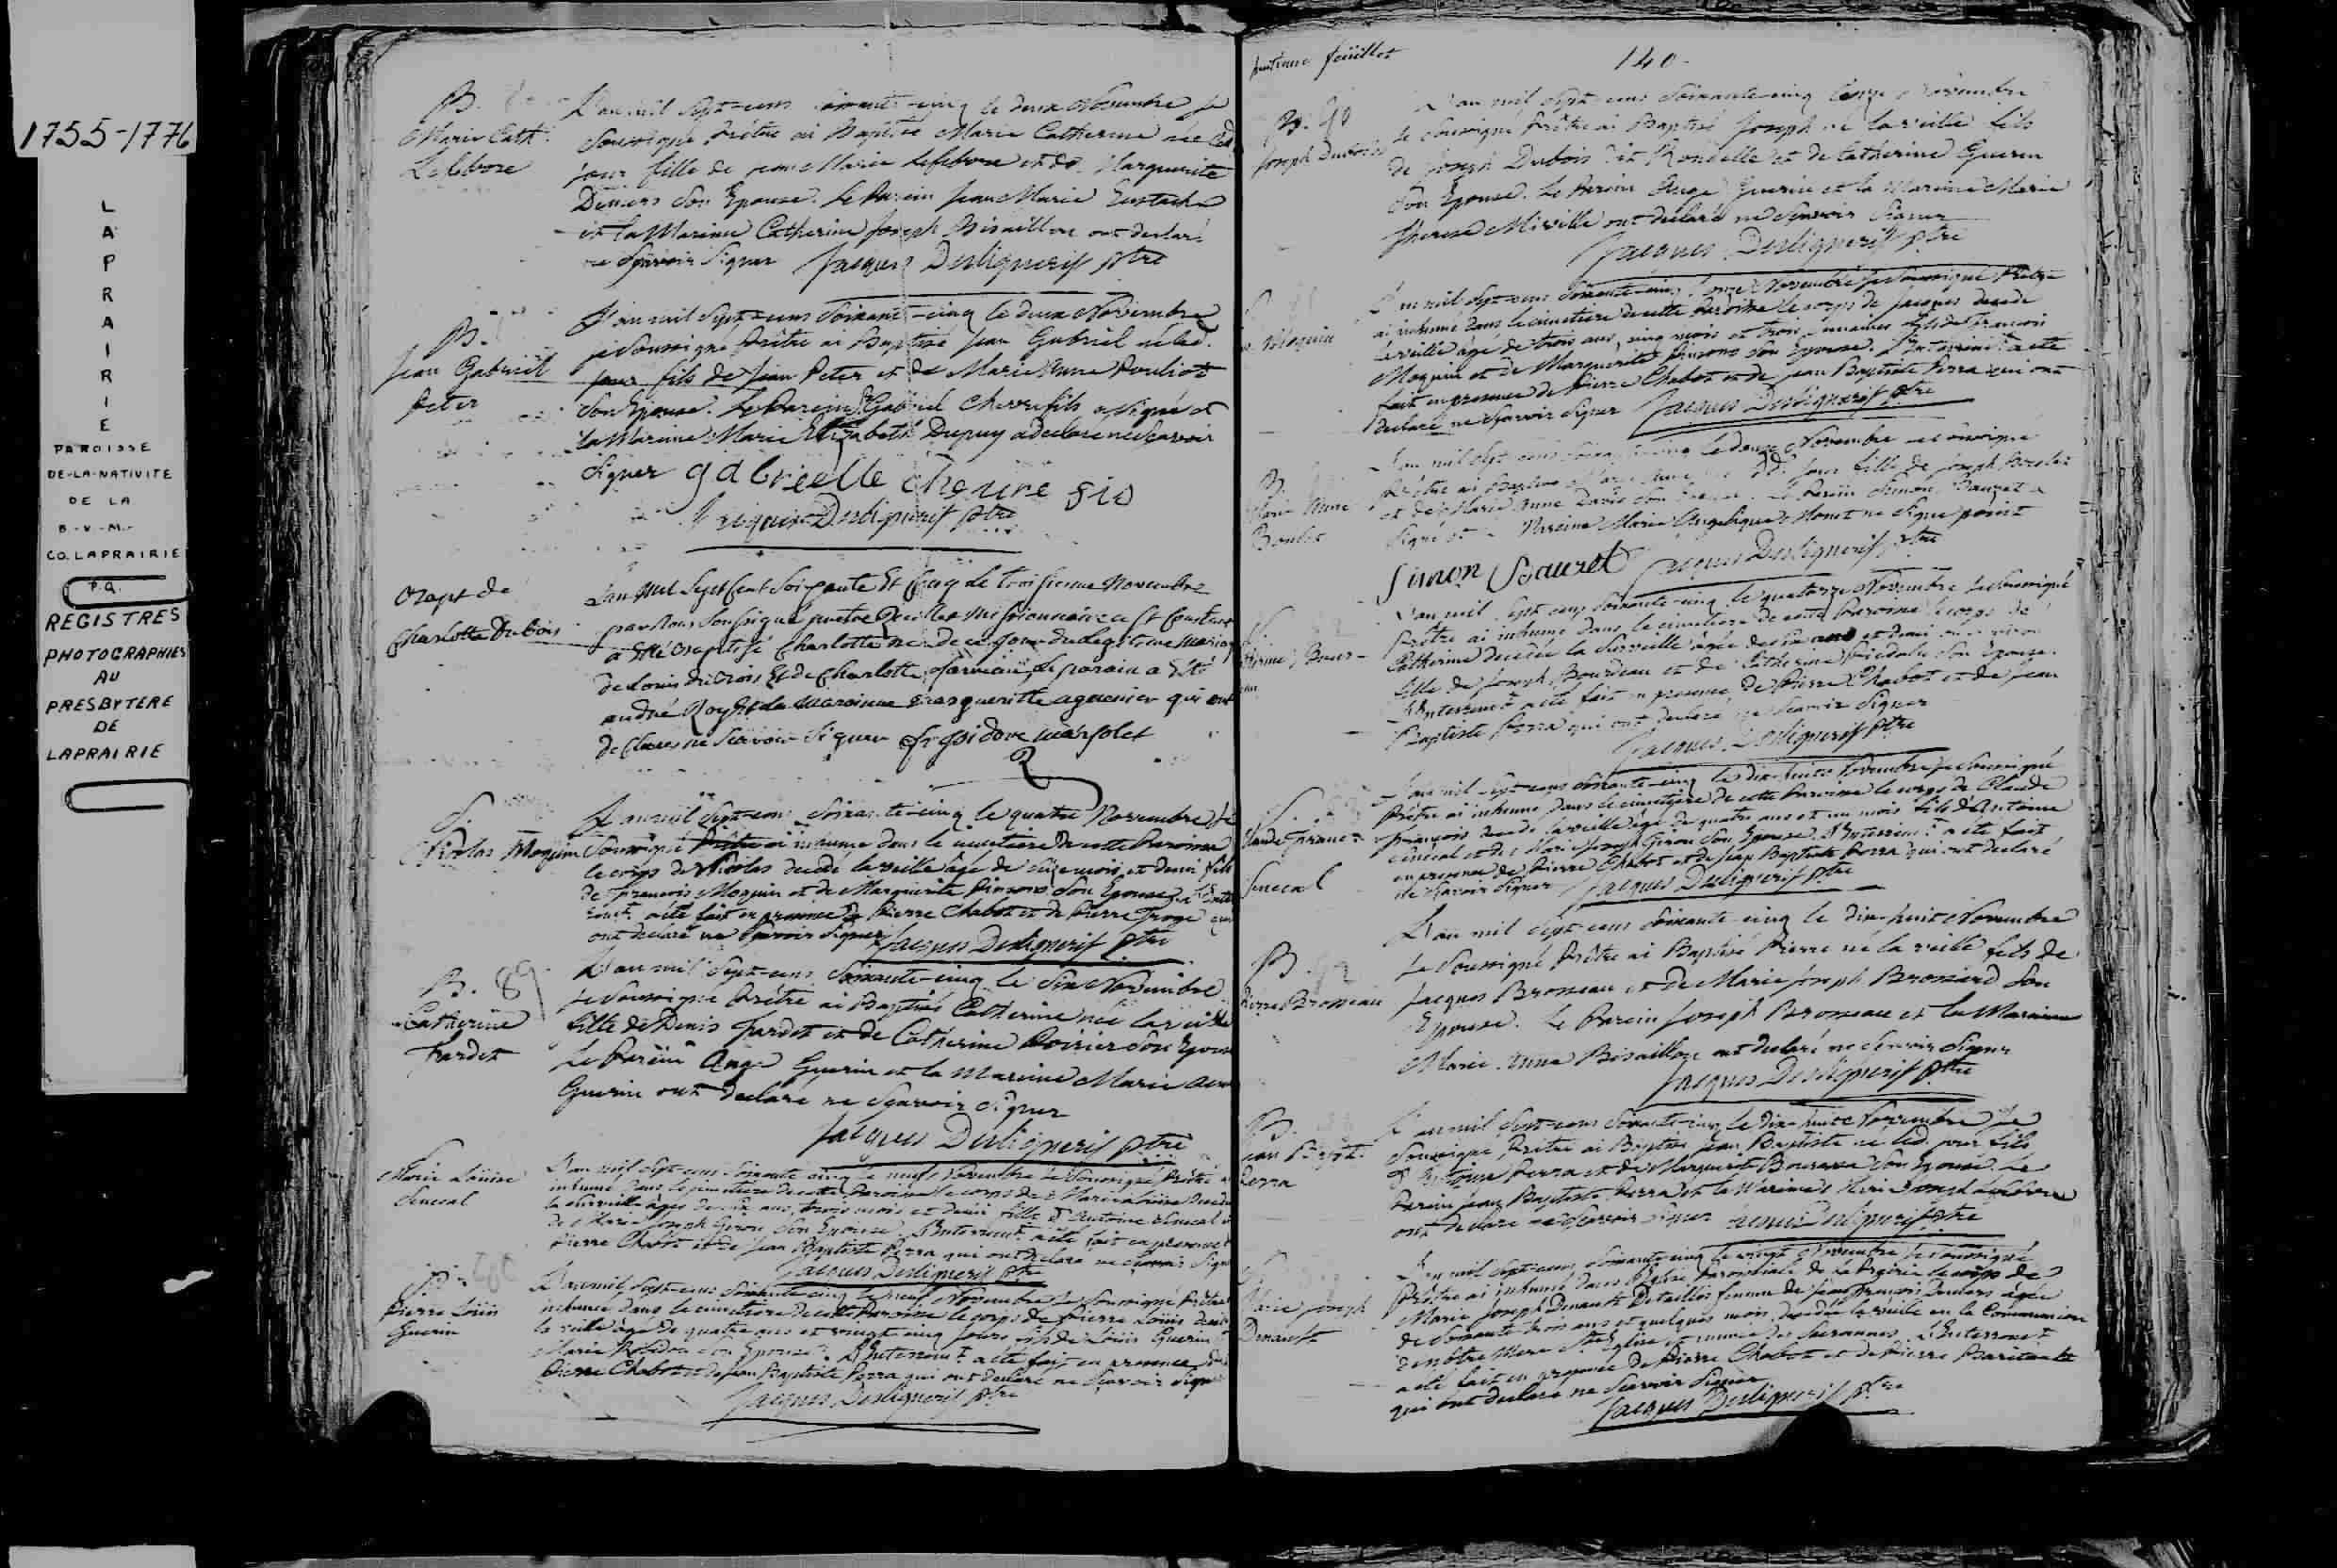 1755-1776
LAPRAIRIE
PAROISSE
DE-LA-NATIVITE
DE LA
B-V-M-
CO. LAPRAIRIE
P.Q.
REGISTRES
PHOTOGRAPHIES
AU
PRESBYTERE
DE
LAPRAIRIE
B.
Marie Cath.
Lefebvre
L'an mil Sept-cens soixante-cinq le deux Novembre je
Soussigné Prêtre ai Baptisé Marie Catherine née led.
jour fille de Marie Lefebvre et de Marguerite
Deniers Son Epouse. Le Parein Jean Marie Eustache
et la Mareine Catherine Joseph Bisaillon ont declaré
ne Sçavoir Signer Jacques Desligneris ptre
B.
Jean Gabriel
Peter
L'an mil Sept-cens Soixante-cinq le deux Novembre
je Soussigné Prêtre ai Baptisé Jean Gabriel né led.
jour fils de Jean Peter et de Marie Anne Pouliot
Son Epouse. Le Parein Gabriel Chevre fils a signé et
la Mareine Marie Elizabeth Dupuy a declaré ne Scavoir
Signer gabrielle cheure fis
Jacques Desligneris ptre
Bapt de
Charlotte Dubois
L'an Mil Sept Cent Soixante Et Cinq le troisieme Novembre
par Nous Soussigné pretre missionnaire a St Constant
a Eté Baptisé Charlotte née de ce jour du legitime mariage
de Louis dubois Et de Charlotte le parain a Eté
andré Roy Et la Maraine marguerite aguenier qui ont
declaré ne Scavoir Signer fr isidore marsolet
S.
Nicolas Moquin
L'an mil Sept-cens Soixante-cinq le quatre Novembre je
Soussigné Prêtre ai inhumé dans le cimetiere de cette Paroisse
le corps de Nicolas decedé la veille âgé de mois et demi fils
de François Moquin et de Marguerite Pinsono Son Epouse. L'Enter
remt. a été fait en presence de Pierre Chabot et de Pierre qui
ont declaré ne Sçavoir Signer Jacques Desligneris ptre
B. 89.
Catherine
Fardet
L'an mil Sept-cens Soixante-cinq le Six Novembre
je Soussigné Prêtre ai Baptisé Catherine née la veille
fille de Denis Fardet et de Catherine Poirier Son Epouse
Le Parein Ange Guerin et la Mareine Marie Anne
Guerin ont declaré ne Sçavoir Signer
Jacques Desligneris ptre
S.
Marie Louise
Senecal
L'an mil Sept-cens Soixante cinq le neuf Novembre je Soussigné Prêtre ai
inhumé dans le cimetiere de cette Paroisse le corps de Marie Louise decedée
la surveille âgée de ans, trois mois et demi fille d'Antoine Senecal et
de Marie Joseph Giron Son Epouse. L'Enterremt. a été fait en presence de
Pierre Chabot et de Jean Baptiste Perra qui ont declaré ne Scavoir Signer
Jacques Desligneris ptre
S.
Pierre Loüis
Guerin
L'an mil Sept-cens Soixante cinq le neuf Novembre je Soussigné Prêtre ai
inhumé dans le cimetiere de cette Paroisse le corps de Pierre Loüis decedé
la veille âgé de quatre ans et vingt-cinq jours fils de Loüis Guerin et
Marie Robidou son Epouse. L'Enterremt. a été fait en presence de
Pierre Chabot et de Jean Baptiste Perra qui ont declaré ne Scavoir Signer
Jacques Desligneris ptre
feüillet
140.
B. 90
Joseph Dubois
L'an mil Sept cens Soixante-cinq Novembre
je Soussigné Prêtre ai Baptisé Joseph né la veille fils
de Joseph Dubois dit Rondelle et de Catherine Guerin
Son Epouse. Le Parein Ange Guerin et la Mareine Marie
Therese Miville ont declaré ne Sçavoir Signer
Jacques Desligneris ptre
Moquin
L'an mil Sept-cens Soixante-cinq Novembre je Soussigné Prêtre
ai inhumé dans le cimetiere de cette Paroisse le corps de Jacques decedé
la veille âgé de trois ans, cinq mois et trois semaines fils de François
Moquin et de Marguerite Pinsono Son Epouse. L'Enterremt. a été
fait en presence de Pierre Chabot et de Jean Baptiste Perra qui ont
declaré ne Sçavoir Signer Jacques Desligneris ptre
B.
Marie Anne
Boulet
L'an mil Sept cens le douze Novembre je Soussigné
Prêtre ai Baptisé Marie Anne jour fille de Joseph Boulet
et de Marie Anne David Son Epouse. Le Parein Simon Bauzet a
Signé et la Mareine Marie Angelique Monet ne Signe point
Simon Bauzet Jacques Desligneris ptre
S.
Catherine Bour-
L'an mil Sept cens Soixante-cinq le quatorze Novembre je Soussigné
Prêtre ai inhumé dans le cimetiere de cette Paroisse le corps de
Catherine decedée la surveille âgée de ans et demi environ
fille de Joseph Bourdeau et de Catherine Son Epouse.
L'Enterremt. a été fait en presence de Pierre Chabot et de Jean
Baptiste Perra qui ont declaré ne Scavoir Signer
Jacques Desligneris ptre
S.
Claude François
Senecal
L'an mil Sept-cens Soixante-cinq le dix-huit Novembre je Soussigné
Prêtre ai inhumé dans le cimetiere de cette Paroisse le corps de Claude
François decedé la veille âgé de quatre ans et un mois fils d'Antoine
Senecal et de Marie Joseph Giron Son Epouse. L'Enterremt. a été fait
en presence de Pierre Chabot et de Jean Baptiste Perra qui ont declaré
ne Sçavoir Signer Jacques Desligneris ptre
B.
Pierre Brosseau
L'an mil Sept cens Soixante cinq le dix-huit Novembre
je Soussigné Prêtre ai Baptisé Pierre né la veille fils de
Jacques Brosseau et de Marie Joseph Brossard Son
Epouse. Le Parein Joseph Brosseau et la Mareine
Marie Anne Bisaillon ont declaré ne Scavoir Signer
Jacques Desligneris ptre
B.
Jean Bapt.
Perra
L'an mil Sept-cens Soixante-cinq le dix-huit Novembre je
Soussigné, Prêtre ai Baptisé Jean Baptiste né led. jour fils
d'Antoine Perra et de Marguerite Bourassa Son Epouse. Le
Parein Jean Baptiste Perra et la Mareine Marie Joseph Lefebvre
ont declaré ne Scavoir Signer Jacques Desligneris ptre
S.
Marie Joseph
Denault
L'an mil Sept-cens Soixante-cinq le vingt Novembre je Soussigné
Prêtre ai inhumé dans l'Eglise Paroissiale de La Prairie le corps de
Marie Joseph Denault Detaillis femme de Jean François âgée
de Soixante trois ans et quelques mois, decedée la veille en la Communion
de nôtre Mere Ste Eglise et munie des Sacremens. L'Enterremt.
a été fait en presence de Pierre Chabot et de Pierre Bariteault
qui ont declaré ne Scavoir Signer
Jacques Desligneris ptre